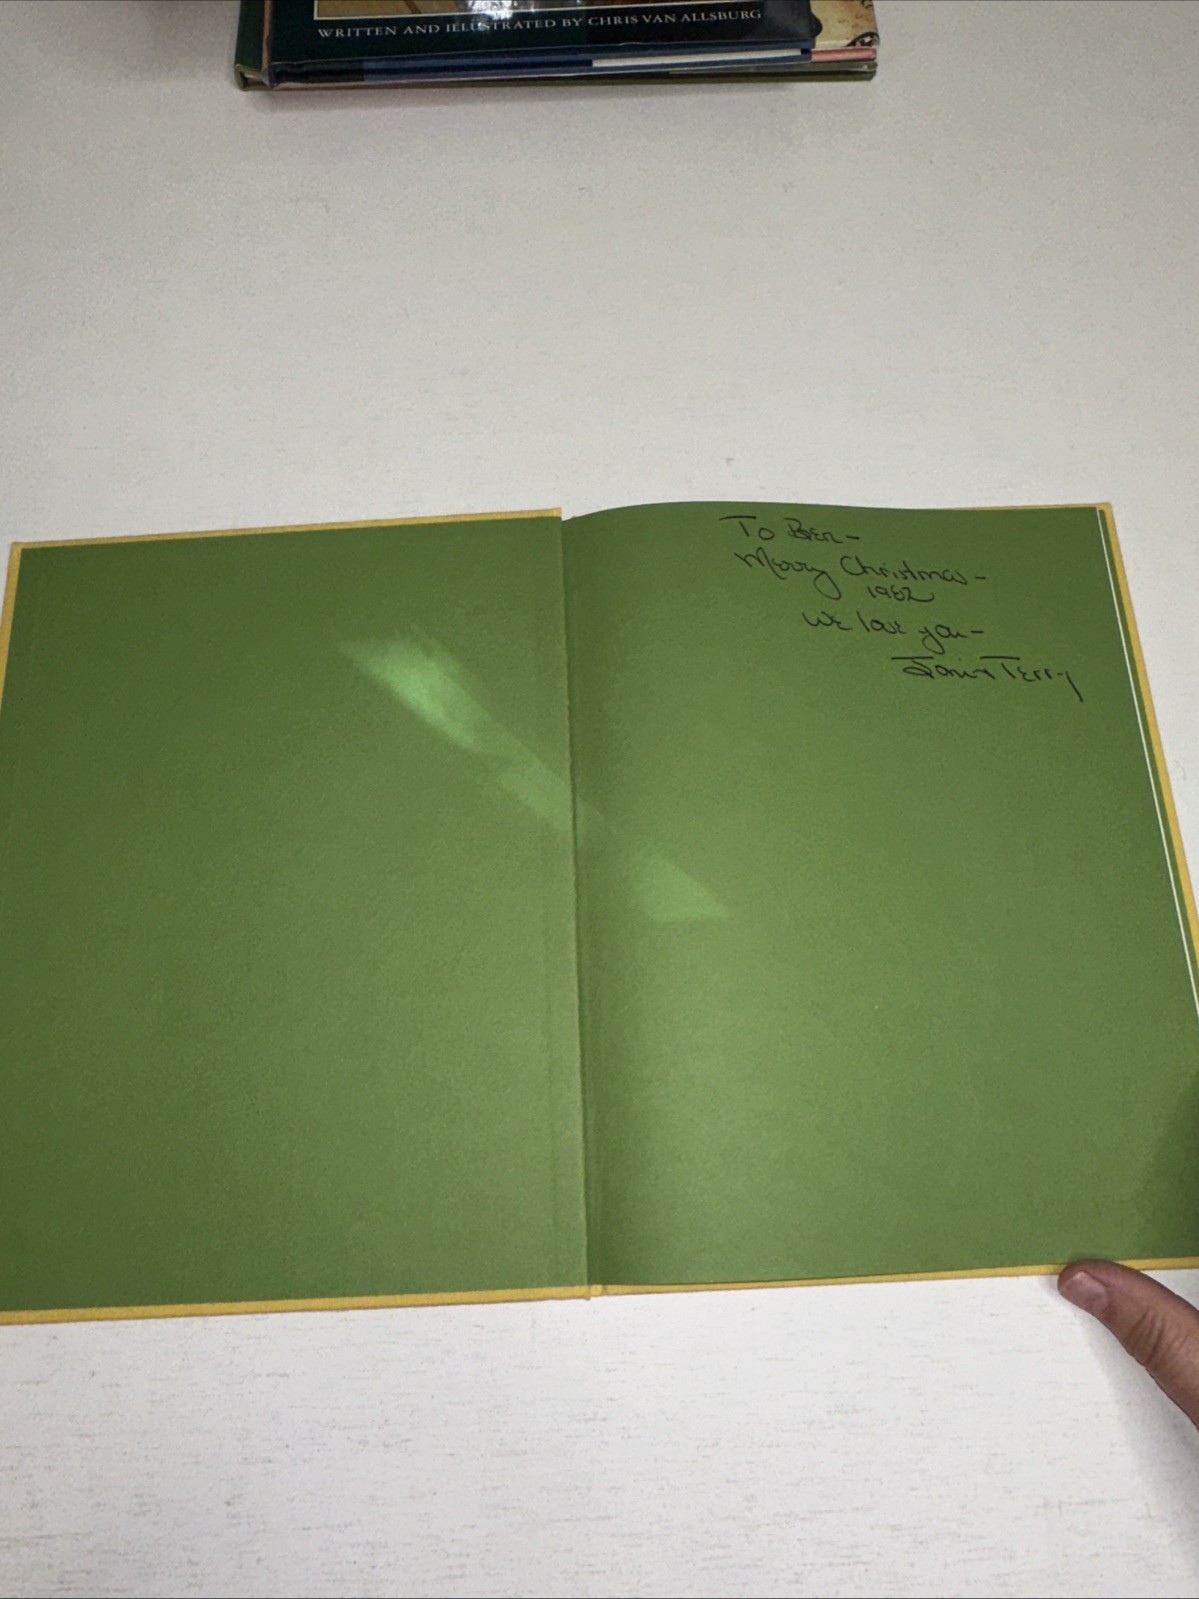 WRITTEN AND ILLUSTRATED BY CHRIS VAN ALLSBURG
To Ben-
Merry Christmas-
1982
We love you-
Terry